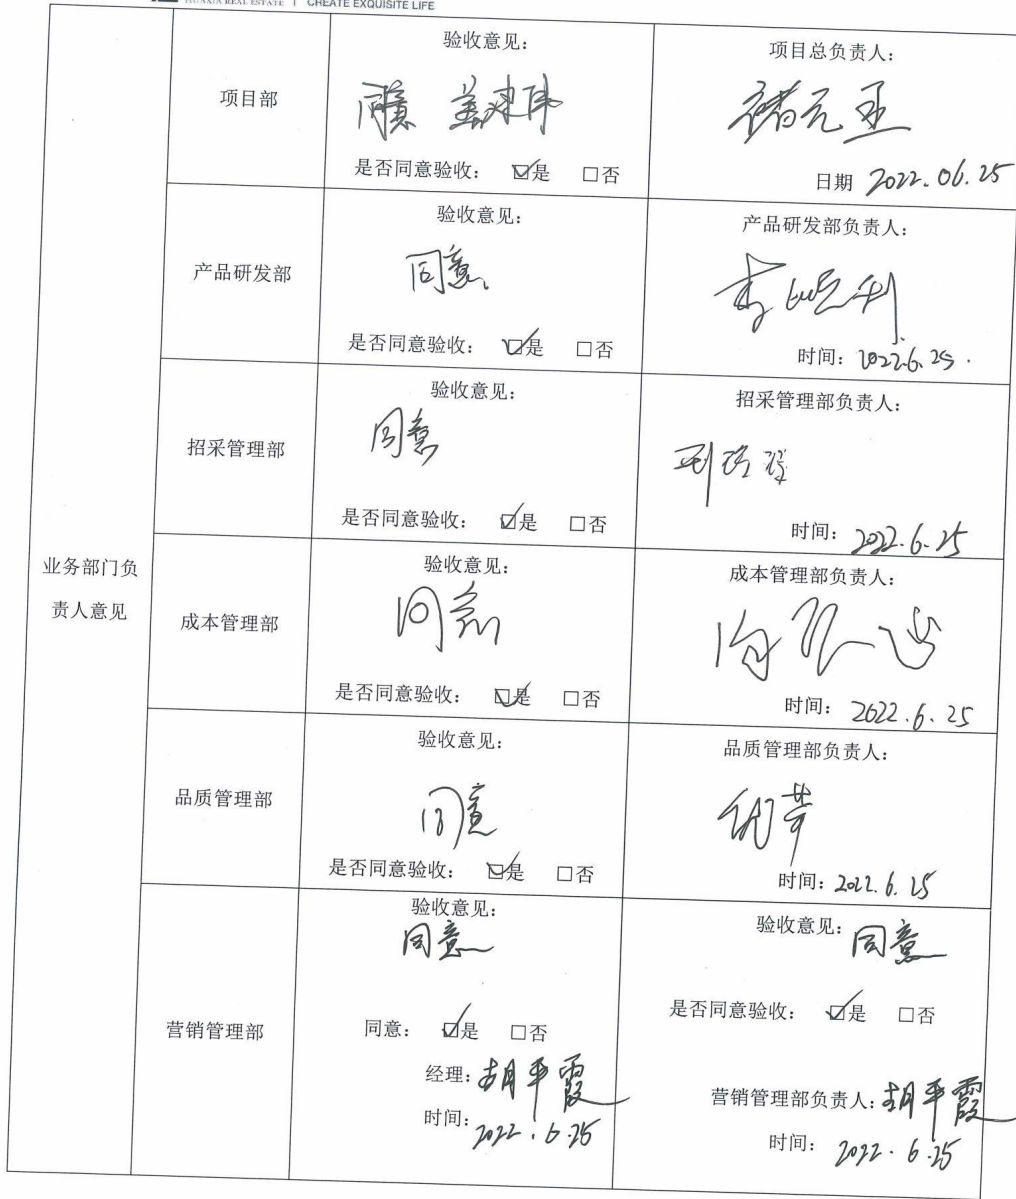 HUAXIA REAL ESTATE | CREATE EXQUISITE LIFE
业务部门负
责人意见
项目部
验收意见：
同意
是否同意验收： ☑是 □否
项目总负责人：
日期 2022.06.25
产品研发部
验收意见：
同意
是否同意验收： ☑是 □否
产品研发部负责人：
时间：2022.6.25
招采管理部
验收意见：
同意
是否同意验收： ☑是 □否
招采管理部负责人：
时间：2022.6.25
成本管理部
验收意见：
同意
是否同意验收： ☑是 □否
成本管理部负责人：
时间：2022.6.25
品质管理部
验收意见：
同意
是否同意验收： ☑是 □否
品质管理部负责人：
时间：2022.6.25
营销管理部
验收意见：
同意
同意： ☑是 □否
经理：胡平霞
时间：2022.6.25
验收意见：同意
是否同意验收： ☑是 □否
营销管理部负责人：胡平霞
时间：2022.6.25